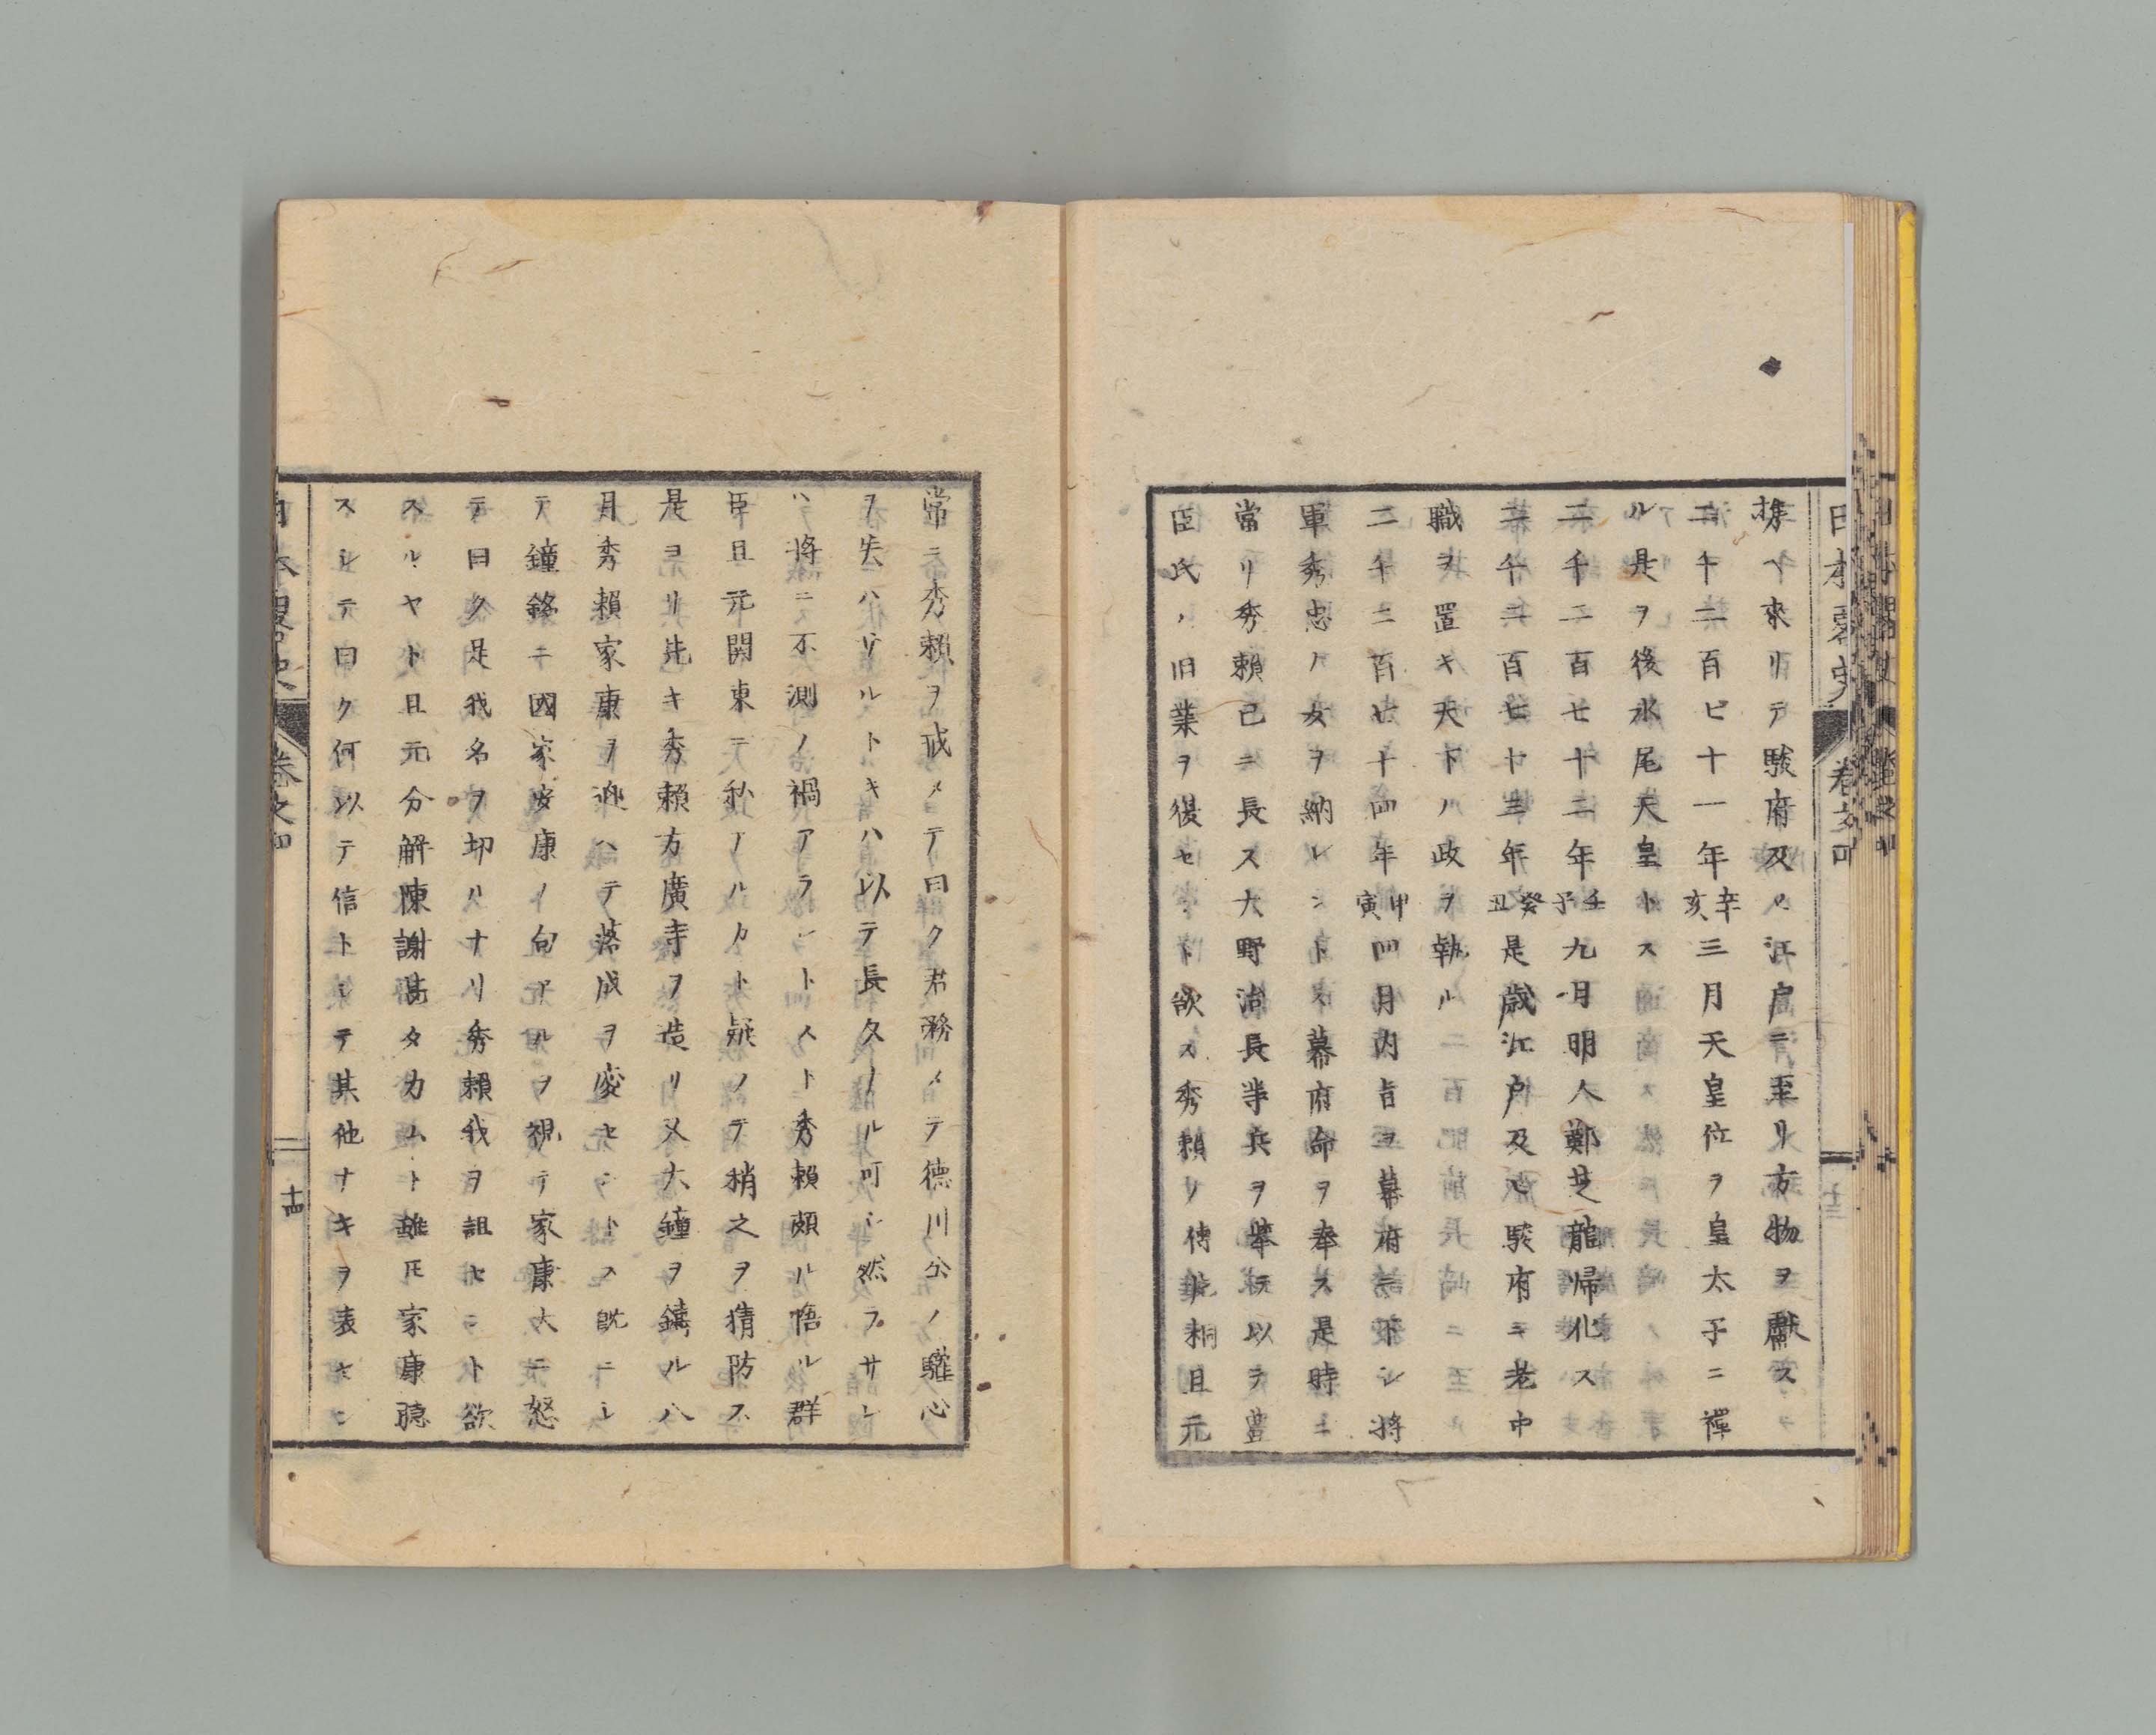 携ヘ來リテ駿府及ヒ江戸ニ至リ方物ヲ獻ス
二千二百七十一年辛亥三月天皇位ヲ皇太子ニ禪
ル是ヲ後水尾天皇トス
二千二百七十二年壬子九月明人鄭芝龍歸化ス
二千二百七十三年癸丑是歳江戸及ヒ駿府ニ老中
職ヲ置キ天下ノ政ヲ執ル
二千二百七十四年甲寅四月内旨ヲ幕府ニ下シ將
軍秀忠ノ女ヲ納レントス幕府命ヲ奉ス是時ニ
當リ秀賴已ニ長ス大野治長等兵ヲ擧テ以テ豊
臣氏ノ旧業ヲ復セント欲ス秀賴ノ傅片桐且元
常ニ秀賴ヲ戒メテ曰ク君務メテ德川公ノ驩心
ヲ失ハサルトキハ以テ長久ナル可シ然ラサレ
ハ將ニ不測ノ禍アラントスト秀賴頗ル悟ル群
臣且元関東ニ私アルカト疑ノテ稍之ヲ猜防ス
是ヨリ先キ秀賴方廣寺ヲ造リ又大鐘ヲ鑄ル八
月秀賴家康ヲ迎ヘテ落成ヲ慶セントス既ニシ
テ鐘銘ニ國家安康ノ句アルヲ視テ家康大ニ怒
テ曰ク是我名ヲ切ルナリ秀賴我ヲ詛セント欲
スルヤト且元分解陳謝甚タカムト雖モ家康聴
スシテ曰ク何以テ信トシテ其他ナキヲ表セン
日本畧史 卷之四
十四